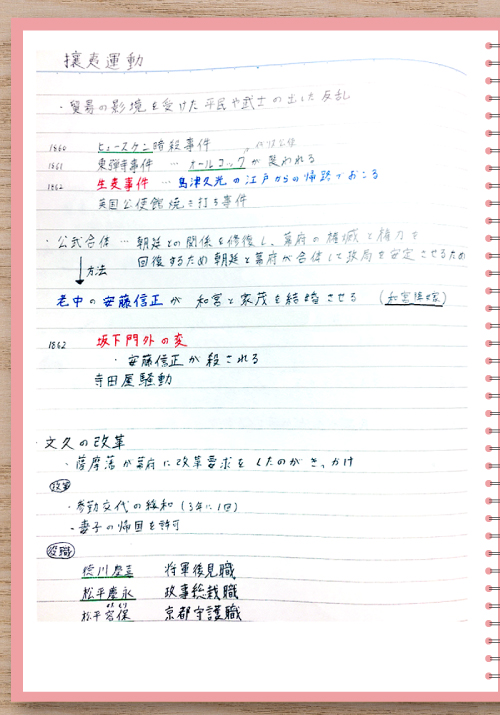 攘夷運動
・貿易の影境を受けた平民や武士の出した反乱
1860 ヒュースケン暗殺事件
1861 東禅寺事件 … オールコックが襲われる
1862 生麦事件 … 島津久光の江戸からの帰路でおこる
英国公使館焼き打ち事件
・公武合体 … 朝廷との関係を修復し、幕府の権威と権力を
回復するため朝廷と幕府が合体して政局を安定させるため
↓方法
老中の安藤信正が 和宮と家茂を結婚させる (和宮降嫁)
1862 坂下門外の変
・安藤信正が殺される
寺田屋騒動
文久の改革
・薩摩藩が幕府に改革要求をしたのがきっかけ
政策
・参勤交代の緩和(3年に1回)
・妻子の帰国を許可
役職
徳川慶喜 将軍後見職
松平慶永 政事総裁職
松平容保 京都守護職